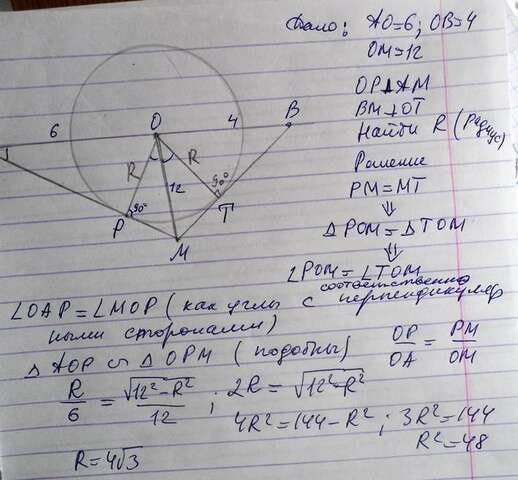 Дано: AO=6; OB=4
OM=12
OP⊥AM
BM⊥OT
Найти R (радиус)
Решение
PM=MT
⇓
△POM=△TOM
⇓
∠POM=∠TOM
6
O
4
B
R
R
12
90°
90°
P
T
M
∠OAP=∠MOP (как углы с соответственно перпендикуляр
ными сторонами)
△AOP ∽ △OPM (подобны) OP/OA = PM/OM
R/6 = √(12²-R²)/12 ; 2R = √(12²-R²)
4R²=144-R² ; 3R²=144
R²=48
R=4√3